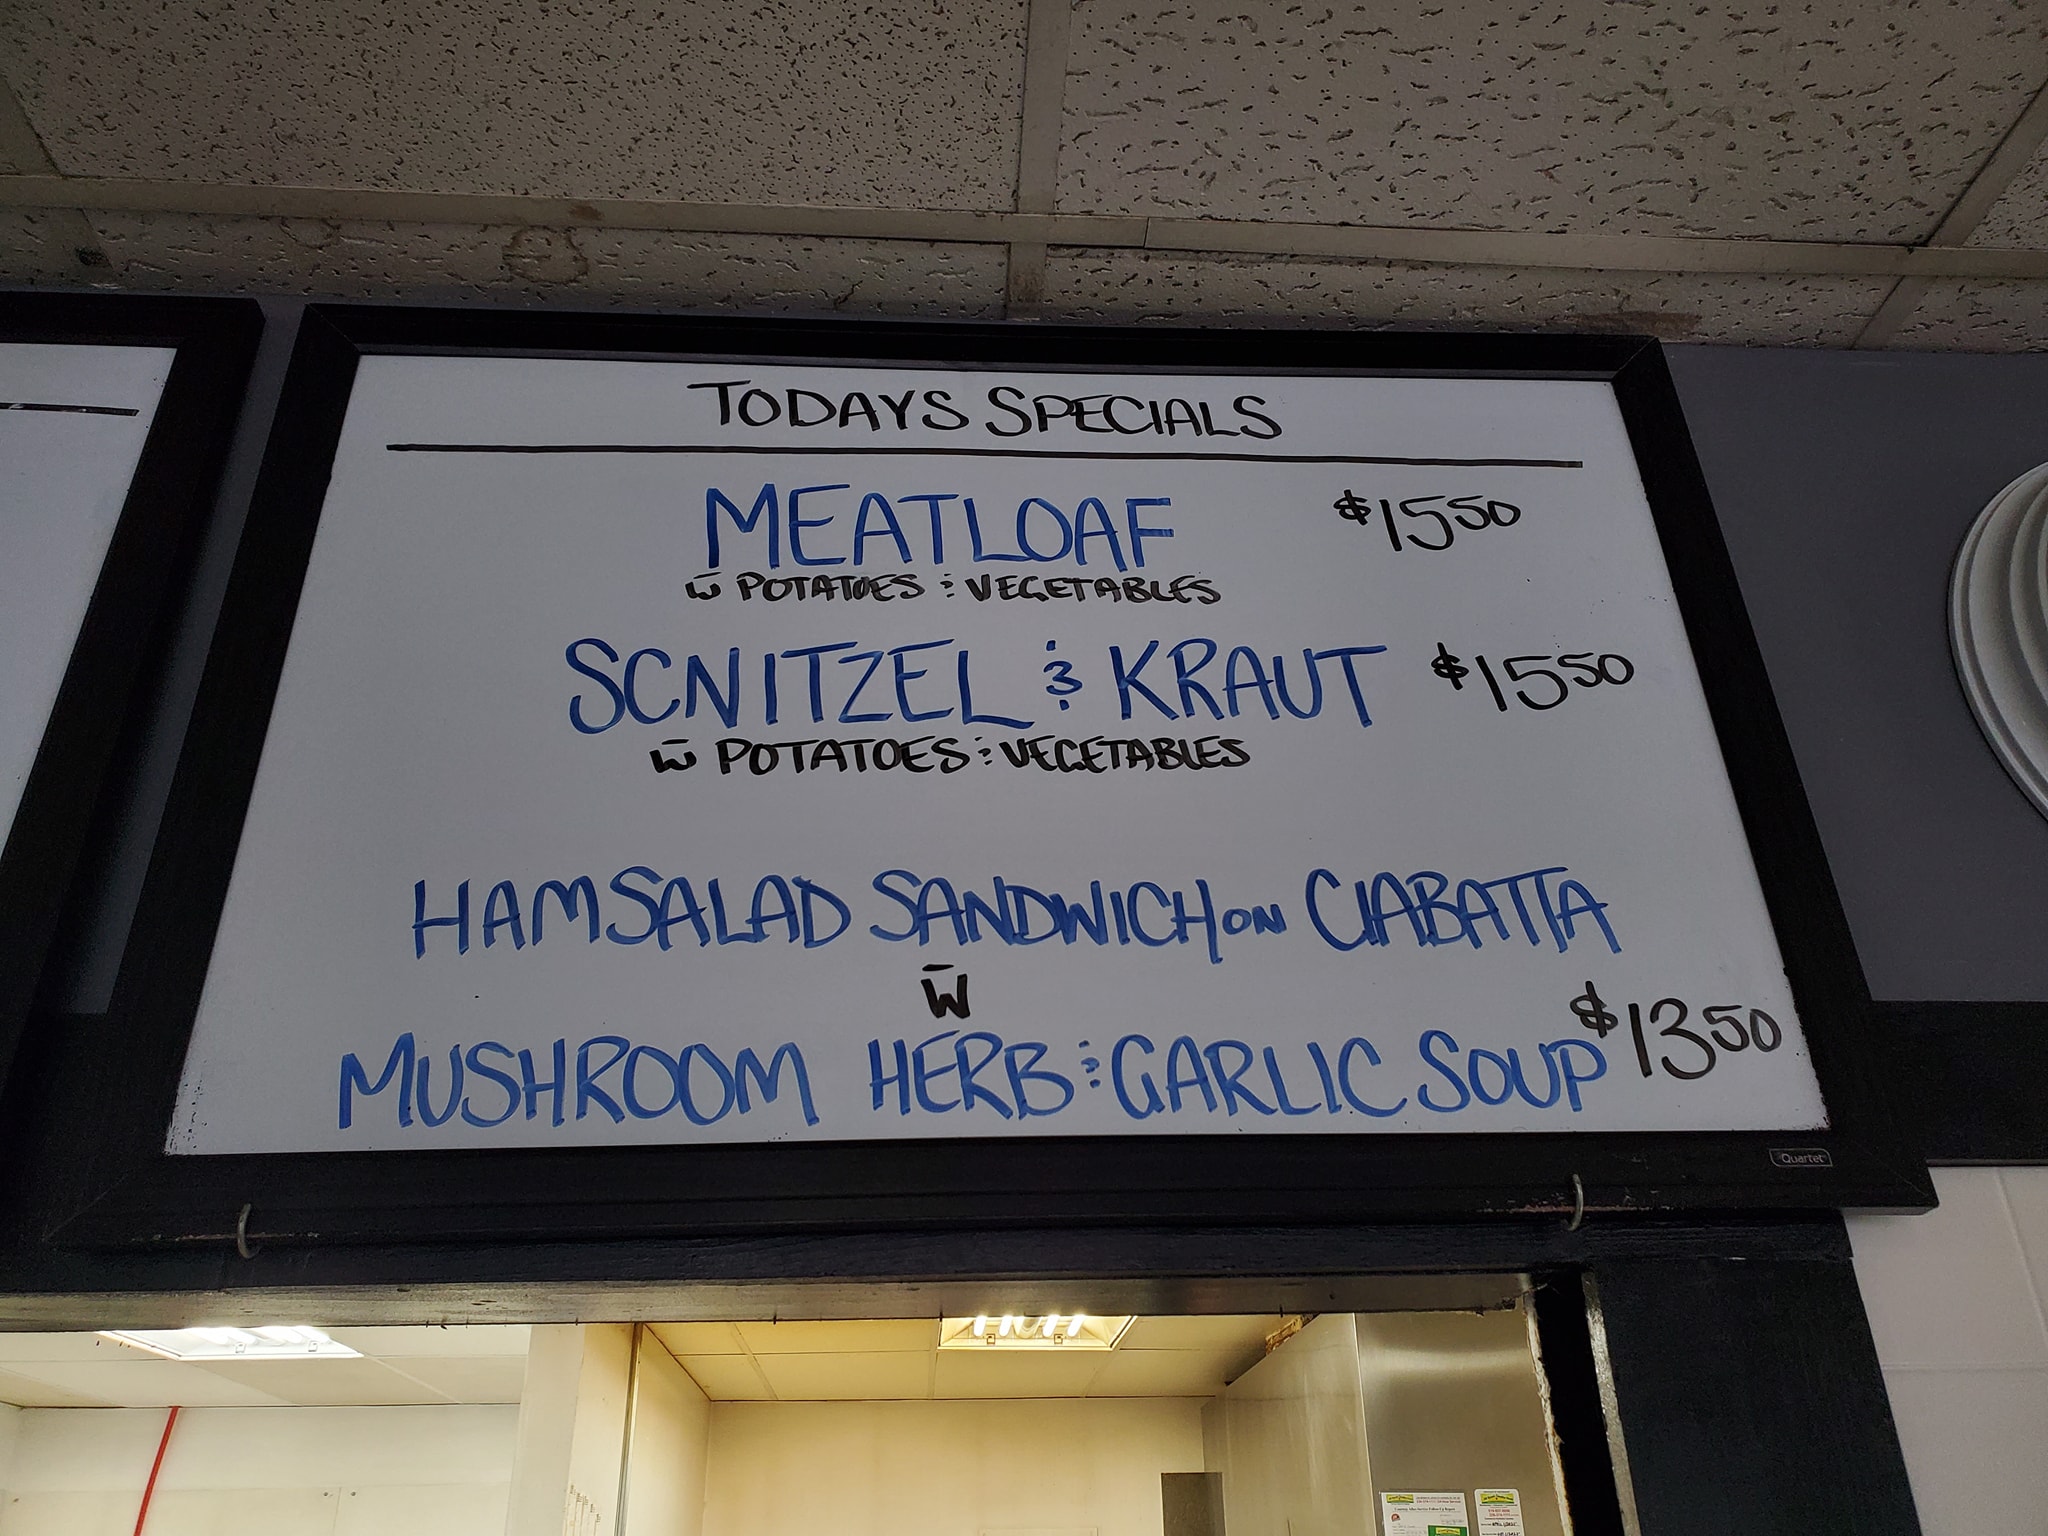 TODAYS SPECIALS
MEATLOAF $15 50
W̄ POTATOES & VEGETABLES
SCNITZEL & KRAUT $15 50
W̄ POTATOES & VEGETABLES
HAM SALAD SANDWICH ON CIABATTA
W̄
MUSHROOM HERB & GARLIC SOUP $13 50
Quartet